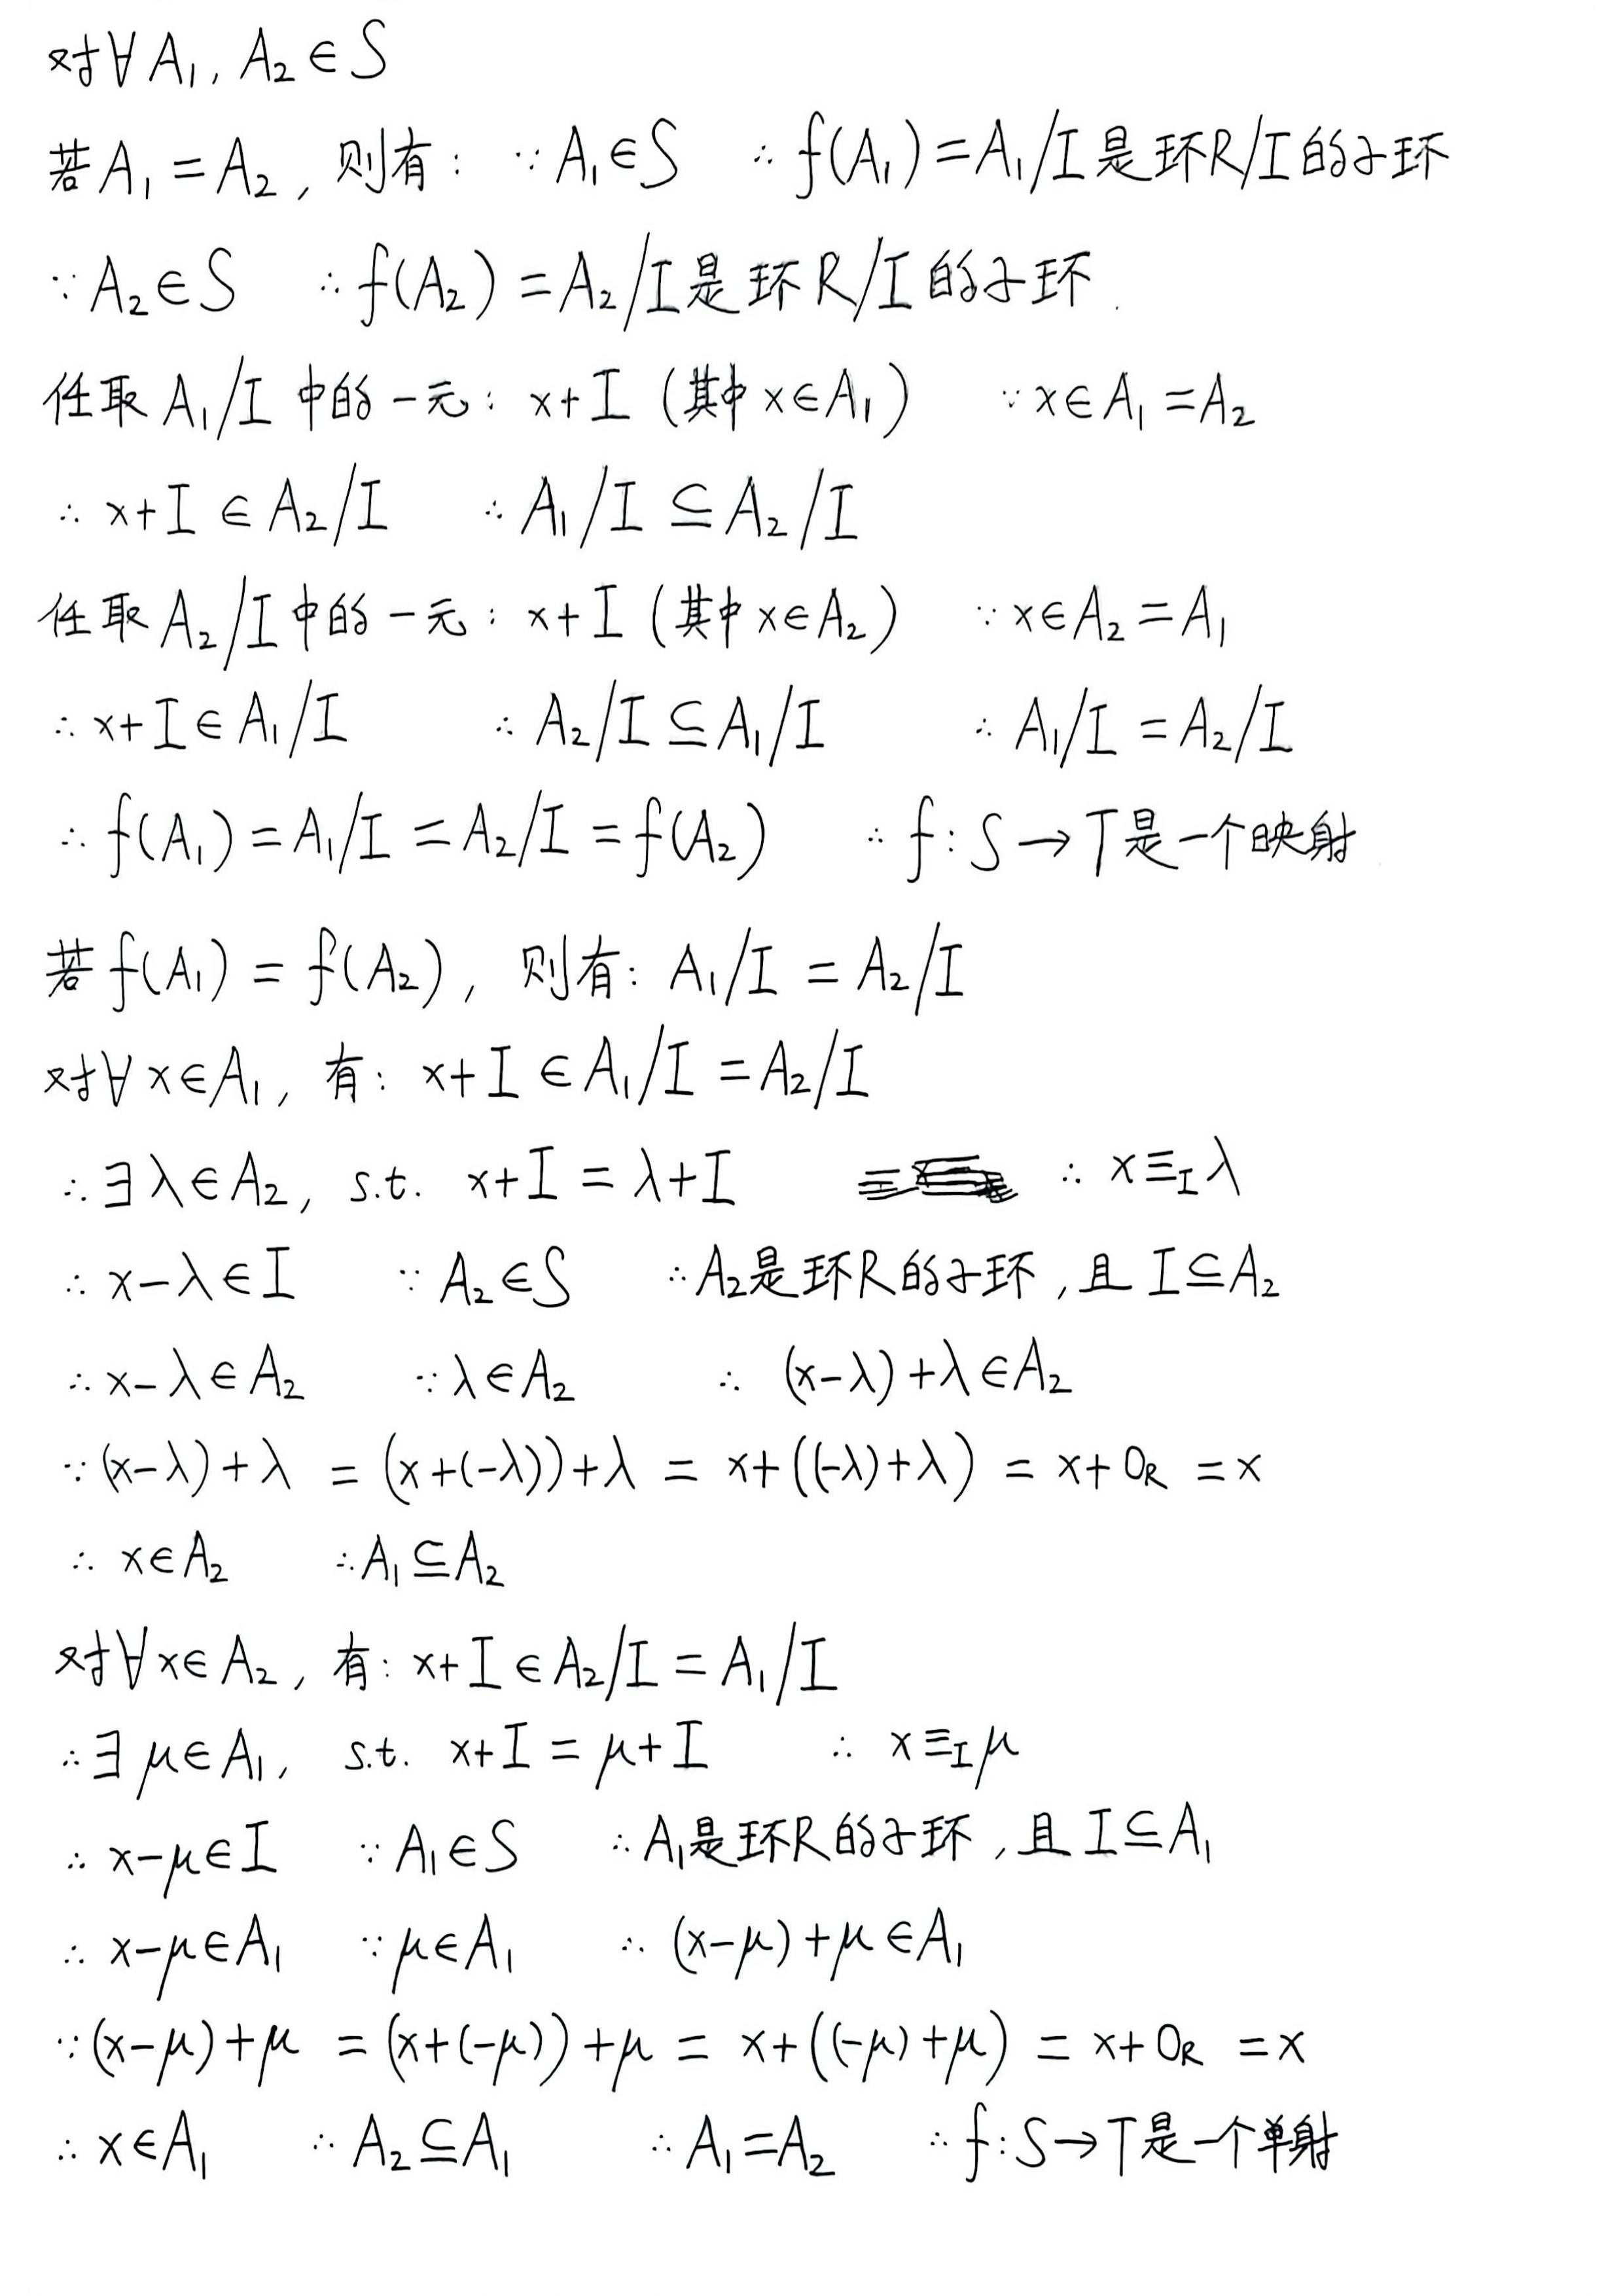 对∀A₁, A₂∈S
若A₁=A₂, 则有: ∵A₁∈S ∴f(A₁)=A₁/I是环R/I的子环
∵A₂∈S ∴f(A₂)=A₂/I是环R/I的子环.
任取A₁/I中的一元: x+I (其中x∈A₁) ∵x∈A₁=A₂
∴x+I∈A₂/I ∴A₁/I⊆A₂/I
任取A₂/I中的一元: x+I (其中x∈A₂) ∵x∈A₂=A₁
∴x+I∈A₁/I ∴A₂/I⊆A₁/I ∴A₁/I=A₂/I
∴f(A₁)=A₁/I=A₂/I=f(A₂) ∴f:S→T是一个映射
若f(A₁)=f(A₂), 则有: A₁/I=A₂/I
对∀x∈A₁, 有: x+I∈A₁/I=A₂/I
∴∃λ∈A₂, s.t. x+I=λ+I ∴x≡_I λ
∴x-λ∈I ∵A₂∈S ∴A₂是环R的子环,且I⊆A₂
∴x-λ∈A₂ ∵λ∈A₂ ∴(x-λ)+λ∈A₂
∵(x-λ)+λ=(x+(-λ))+λ=x+((-λ)+λ)=x+0_R=x
∴x∈A₂ ∴A₁⊆A₂
对∀x∈A₂, 有: x+I∈A₂/I=A₁/I
∴∃μ∈A₁, s.t. x+I=μ+I ∴x≡_I μ
∴x-μ∈I ∵A₁∈S ∴A₁是环R的子环,且I⊆A₁
∴x-μ∈A₁ ∵μ∈A₁ ∴(x-μ)+μ∈A₁
∵(x-μ)+μ=(x+(-μ))+μ=x+((-μ)+μ)=x+0_R=x
∴x∈A₁ ∴A₂⊆A₁ ∴A₁=A₂ ∴f:S→T是一个单射